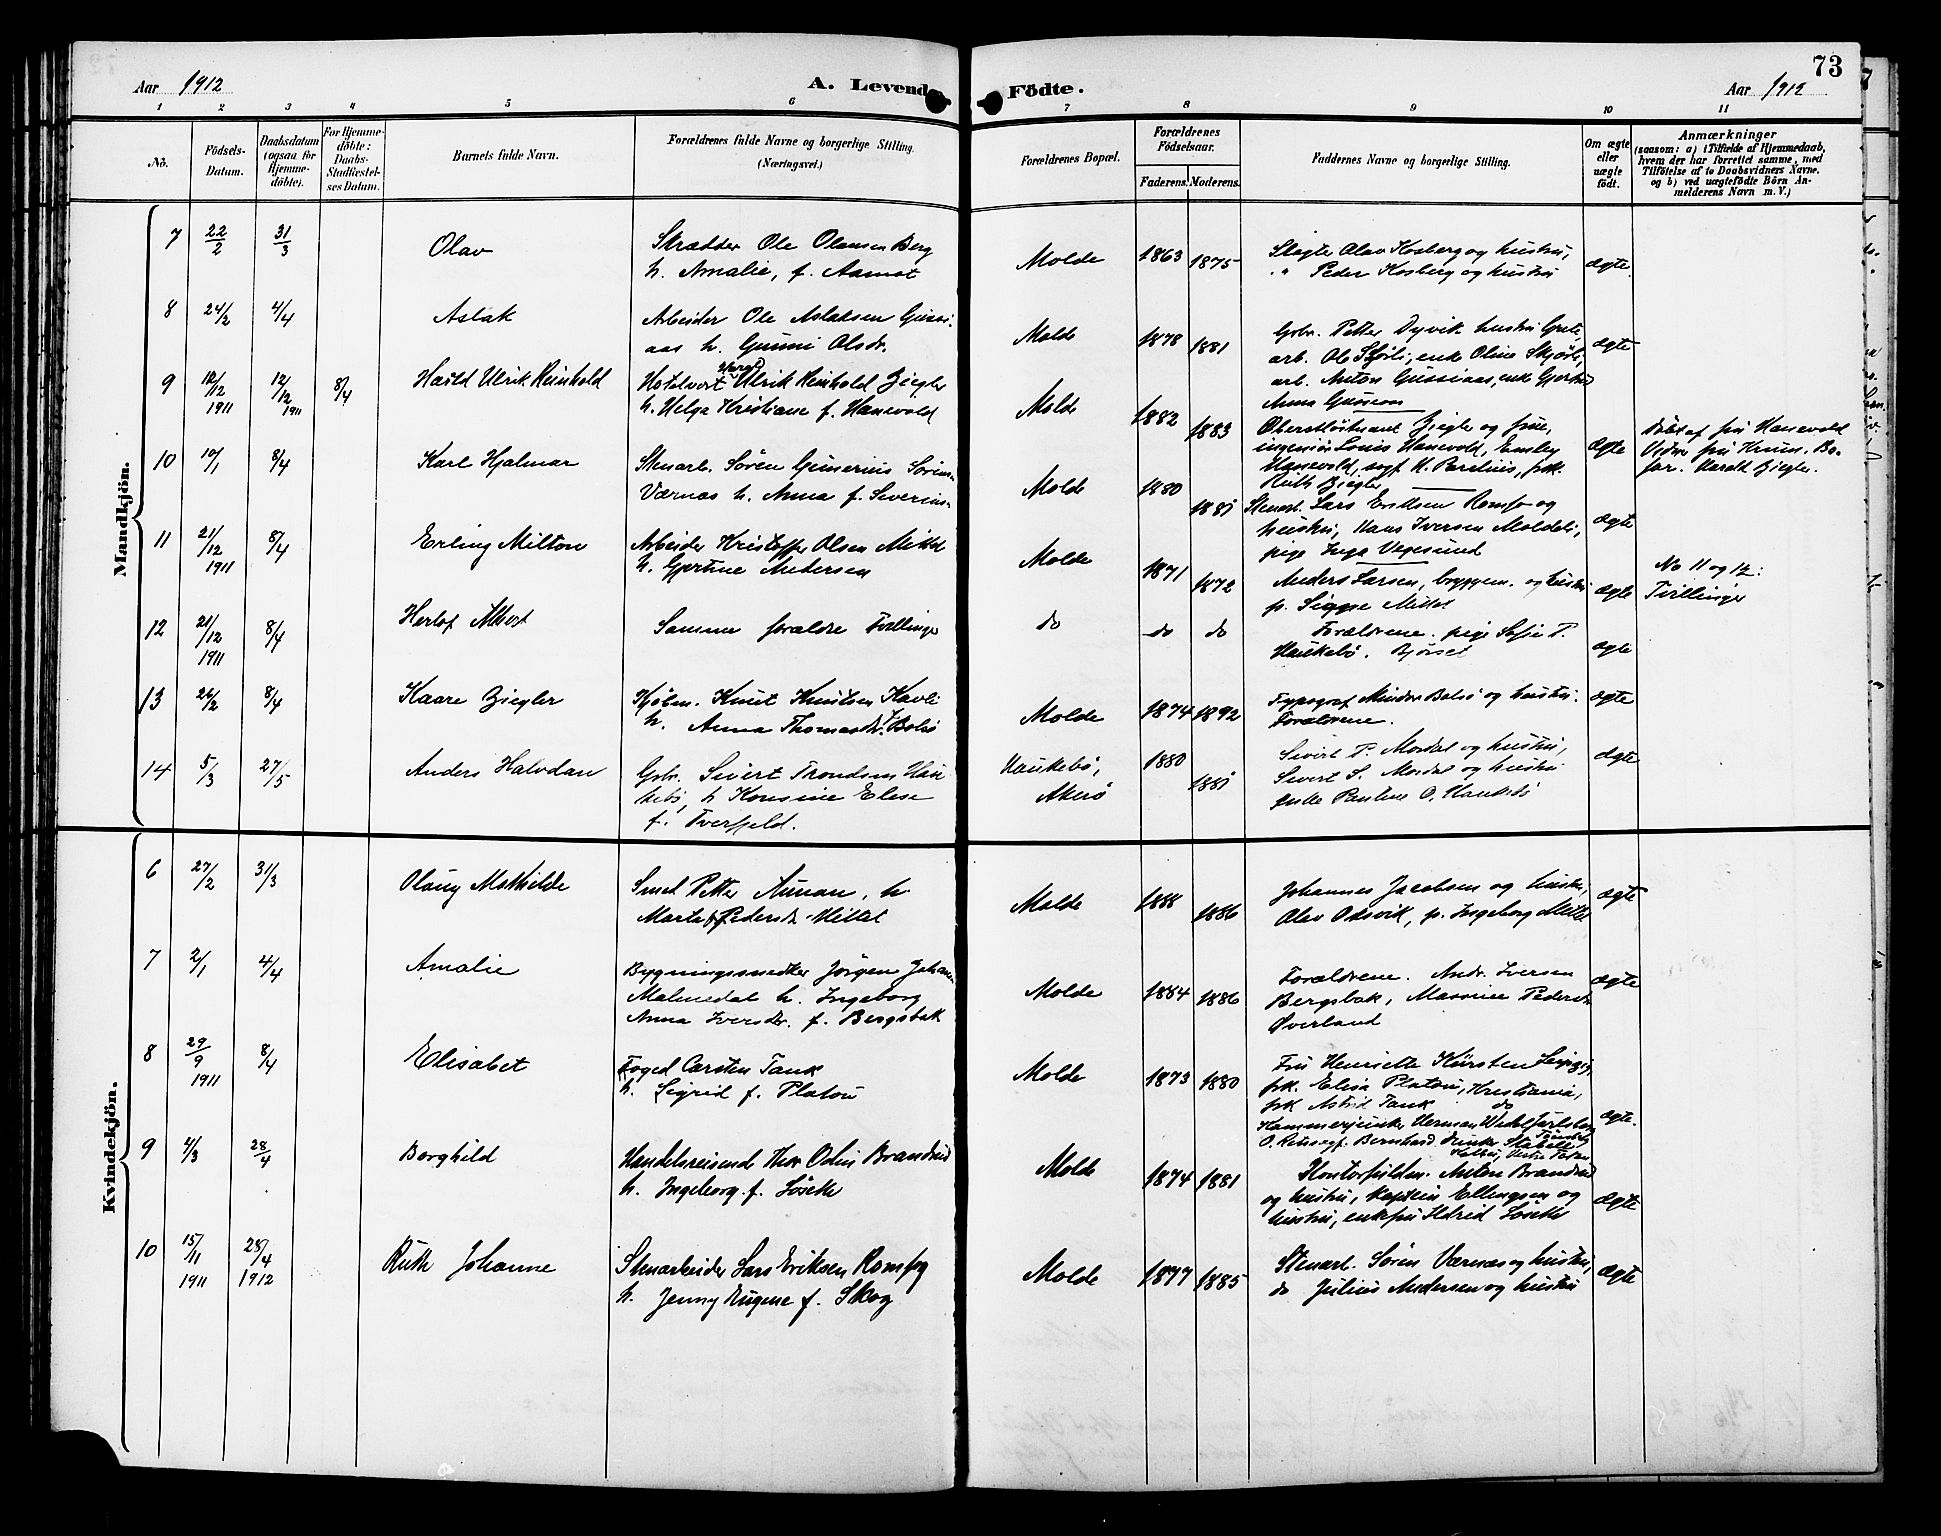 73
Aar 1912
A. Levende Födte.
Aar 1912
1 2 3 4 5 6 7 8 9 10 11
No.
Födsels-
Datum.
Daabsdatum
(ogsaa for
Hjemme-
döbte).
For Hjemme-
döbte:
Daabs-
Stadfæstel-
ses Datum.
Barnets fulde Navn.
Forældrenes fulde Navne og borgerlige Stilling.
(Næringsvei.)
Forældrenes Bopæl.
Forældrenes
Födselsaar.
Faderens. Moderens.
Faddernes Navne og borgerlige Stilling.
Om ægte
eller
uægte
födt.
Anmærkninger
(saasom: a) i Tilfælde af Hjemmedaab,
hvem der har forrettet samme, med
Tilföielse af to Daabsvidners Navne,
og b) ved uægtefödte Börn An-
melderens Navn m. V.)
Mandkjön.
7 22/2 31/3 Olav
Skrædder Ole Olausen Berg
h. Amalie, f. Aamot
Molde 1863 1875
Slagter Olav Kosberg og hustru,
" Peder Kosberg og hustru
ægte.
8 24/2 4/4 Aslak
Arbeider Ole Aslaksen Gussi-
aas h. Gunni Olsdr.
Molde 1878 1881
Gbr. Petter Dyvik hustru Grete,
arb. Ole Skjörli, enke Oline Skjörli,
arb. Anton Gussiaas, enke Gjertrud
Anna
ægte
9 12/12 1911 12/12 1911 8/4 Harld Ulrik Reinhold
Hotelvert Harald Ulrik Reinhold Ziegler
h. Helga Kristiane f. Hanevold
Molde 1882 1883
Oberstløitnant Ziegler og frue,
ingeniör Louis Hanevold, Emsley
Hanevold, sagf. H. Perelius, frk.
Ruth Ziegler
ægte
Döbt af fru Hanevold
Vidner fru Krum. Bo-
Harald Ziegler.
10 10/1 8/4 Karl Hjalmar
Stenarb. Sören Gunerius Sörens.
Værnes h. Anna f. Severins.
Molde 1880 1881
Stenarb. Lars Eriksen Romfo og
hustru, Hans Iversen Moldeli,
pige Inga Vegesund
ægte
11 21/12 1911 8/4 Erling Milton
Arbeider Kristoffer Olsen Mittet
h. Gjertine Andersen
Molde 1871 1872
Anders Larsen, bryggem. og hustru
p. Signe Mittet
ægte
No 11 og 12:
Tvillinger
12 21/12 1911 8/4 Herlof Albert
Samme forældre Tvillinger
do do do
Forældrene. pige Sofie P.
Haukebö. Bjørset
ægte
13 22/2 8/4 Kaare Ziegler
Kjöbm. Knut Knutsen Kavli
h. Anna Thomasdtr. f. Bolsö
Molde 1874 1892
Typograf Bolsö og hustru.
Forældrene.
ægte
14 5/3 27/5 Anders Halvdan
Gbr. Sivert Trondsen Hau-
kebö, h. Konsine Elese
f. Tverfjeld.
Haukebö,
Akerö
1880 1881
Sivert P. Mordal og hustru,
Sivert S. Mordal og hustru
Pauline O. Haukebö
ægte
Kvindekjön.
6 27/2 31/3 Olaug Mathilde
Smed Petter Aunan, h.
Marta Pedersdr. Mittet
Molde 1888 1886
Johannes Jacobsen og hustru,
Olav Odsvik, p. Ingeborg Mittet
ægte
7 2/1 4/4 Amalie
Bygningssnedker Jörgen Johansen
Malmedal h. Ingeborg
Anna Iversdr. f. Bergsbak
Molde 1884 1886
Forældrene. Andr. Iversen
Bergsbak, Massine Pedersdr.
Øverland
ægte
8 29/9 1911 8/4 Elisabet
Foged Carsten Tank
h. Sigrid f. Platou
Molde 1873 1880
Fru Henriette Kürsten Leipzig,
frk. Elisa Platou, Kristiania,
frk Astrid Tank do
Kammerjunker Herman Wedel Jarlsberg
O. Retssagf. Bernhard Dunker
ægte.
9 4/3 28/4 Borghild
Handelsreisende Thor Odin Brandrud
h. Ingeborg f. Löseth
Molde 1874 1881
Kontorfuldm. Anton Brandrud
og hustru, kaptein Ellingsen og
hustru, enkefru Ildrid Löseth
ægte
10 15/11 1911 28/4 1912 Ruth Johanne
Stenarbeider Lars Eriksen Romfog
h. Jenny Eugene f. Skog
Molde 1877 1885
Stenarb. Sören Værnæs og hustru,
do Julius Andersen og hustru
ægte